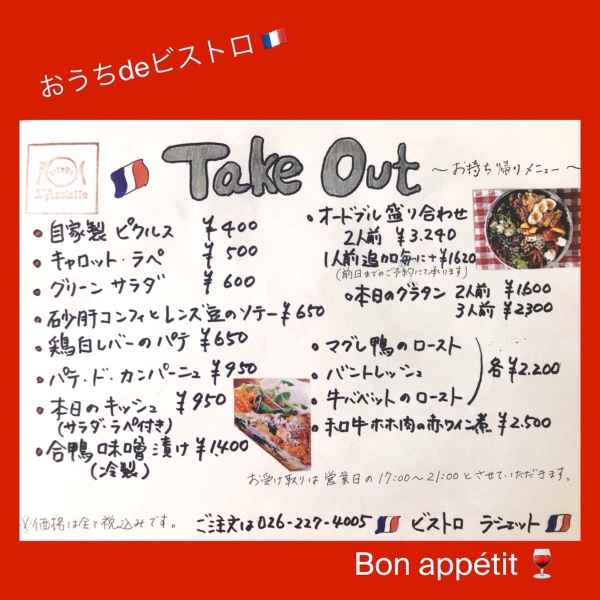 おうちdeビストロ 🇫🇷
BISTRO
L'Assiette
Take Out
～お持ち帰りメニュー～
・自家製 ピクルス ¥400
・キャロット・ラペ ¥500
・グリーン サラダ ¥600
・砂肝コンフィとレンズ豆のソテー ¥650
・鶏白レバーのパテ ¥650
・パテ・ド・カンパーニュ ¥950
・本日のキッシュ ¥950
(サラダ・ラペ付き)
・合鴨 味噌漬け ¥1400
(冷製)
・オードブル 盛り合わせ
2人前 ¥3.240
1人前追加毎に+¥1620
(前日までのご予約にて承ります)
・本日のグラタン 2人前 ¥1600
3人前 ¥2300
・マグレ鴨のロースト
・バントレッシュ
・牛バベットのロースト
各¥2.200
・和牛ホホ肉の赤ワイン煮 ¥2.500
お受け取りは営業日の17:00～21:00とさせていただきます。
※価格は全て税込みです。
ご注文は026-227-4005 ビストロ ラシェット
Bon appétit 🍷